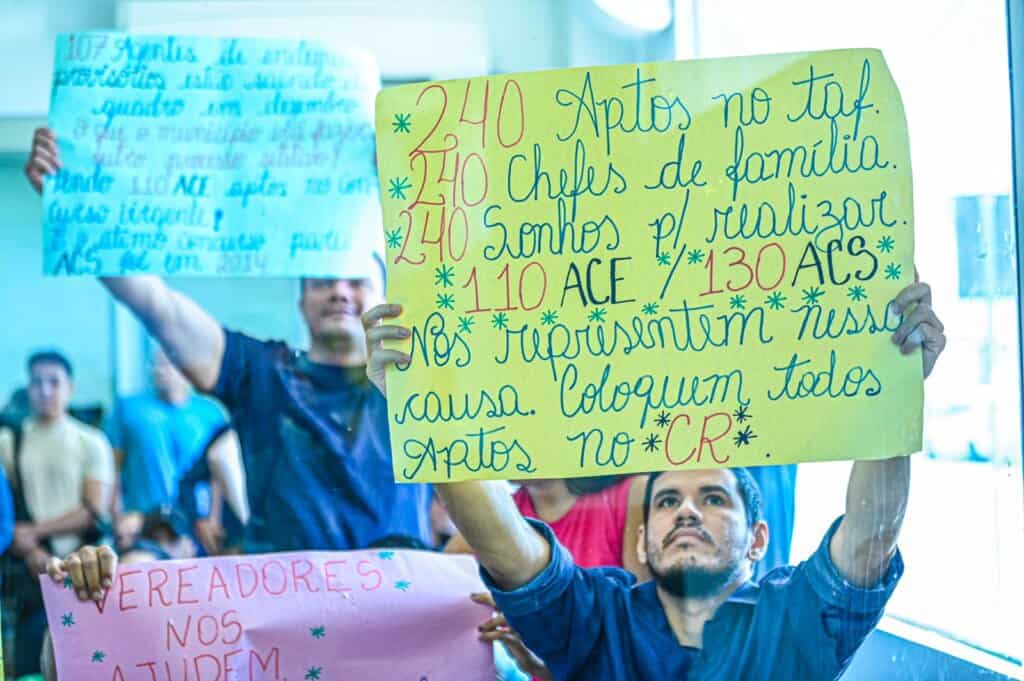 107 Agentes de endemias
provisórios estão saindo do
quadro em dezembro
O que o município irá fazer
outro processo seletivo?
Tendo 110 ACE aptos no con
curso vigente!
E o último concurso para
ACS foi em 2014
240 Aptos no taf.
240 Chefes de família.
240 Sonhos p/ realizar.
110 ACE / 130 ACS
Nós representem nessa
causa. Coloquem todos
Aptos no *CR*.
VEREADORES
NOS
AJUDEM